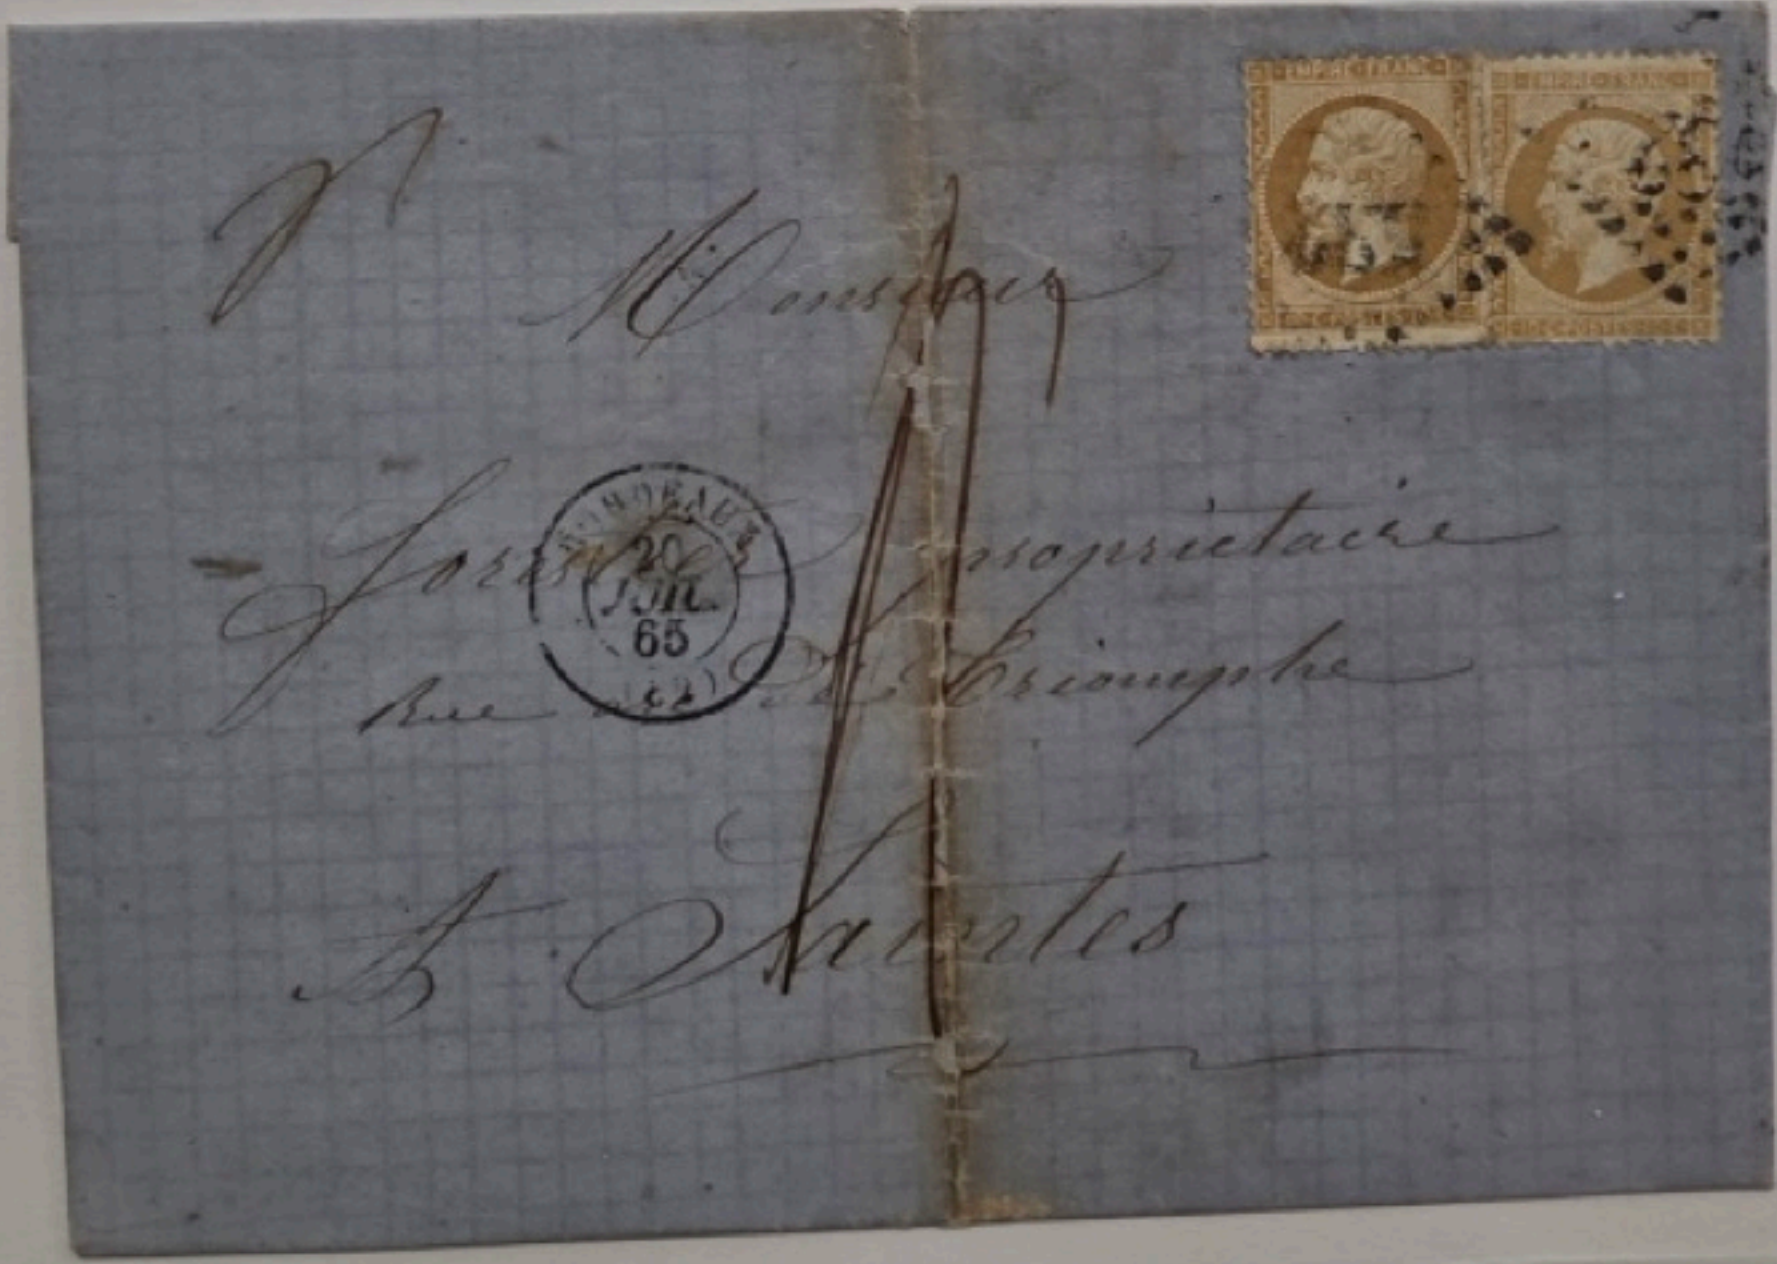 EMPIRE FRANC
EMPIRE FRANC
Monsieur
BORDEAUX
20
JUIL.
65
propriétaire
Rue de Triomphe
A Saintes